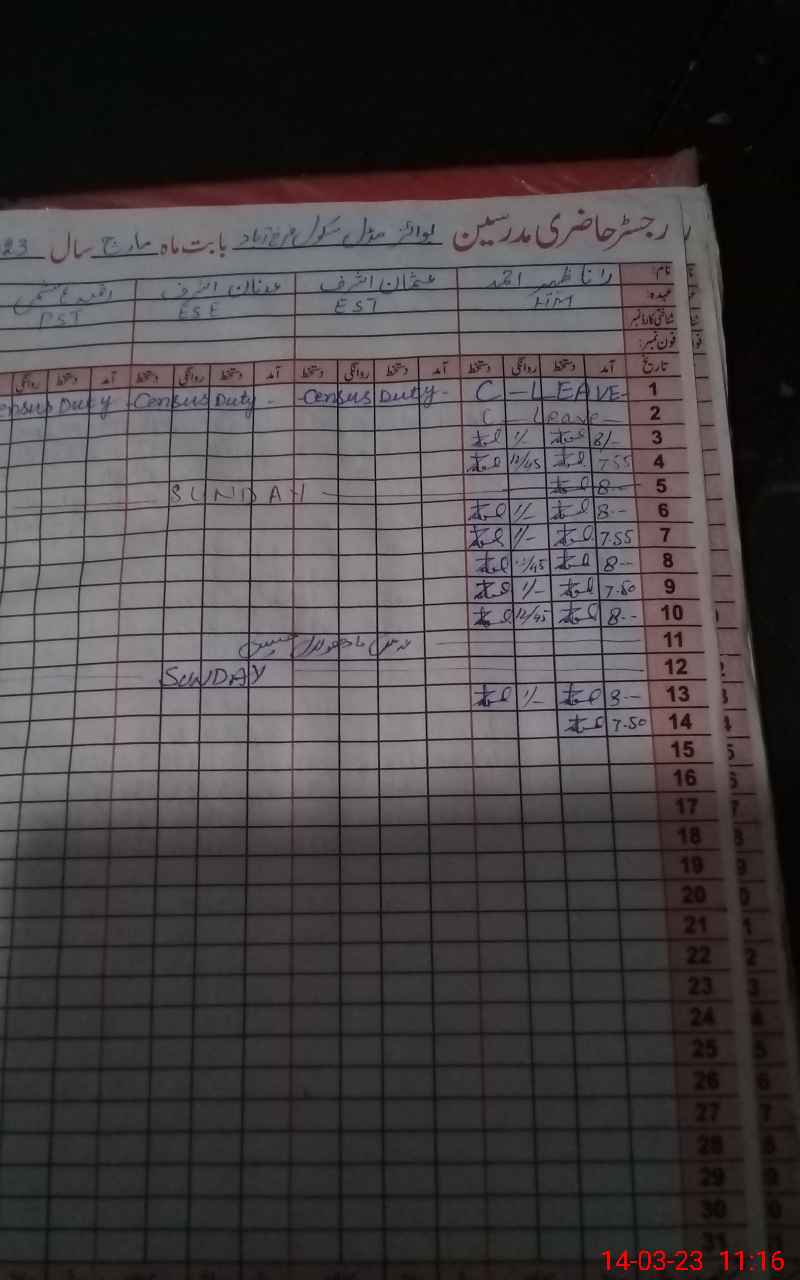 رجسٹر حاضری مدرسین بوائز مڈل سکول بابت ماہ مارچ سال 23
نام: رانا ظہیر احمد عثمان اشرف عدنان اشرف
عہدہ: HM EST ESE PST
شناختی کارڈ نمبر
فون نمبر:
تاریخ آمد دستخط روانگی دستخط آمد دستخط روانگی دستخط آمد دستخط روانگی دستخط آمد دستخط روانگی
1 C - LEAVE - Census Duty - Census Duty - Census Duty
2 C - Leave -
3 8/- 1/-
4 7.55 12/45
5 8-- SUNDAY
6 8-- 1/-
7 7.55 1/-
8 8-- 12/45
9 7.50 1/-
10 8-- 12/45
11
12 SUNDAY
13 8-- 1/-
14 7.50
15
16
17
18
19
20
21
22
23
24
25
26
27
28
29
30
31
14-03-23 11:16